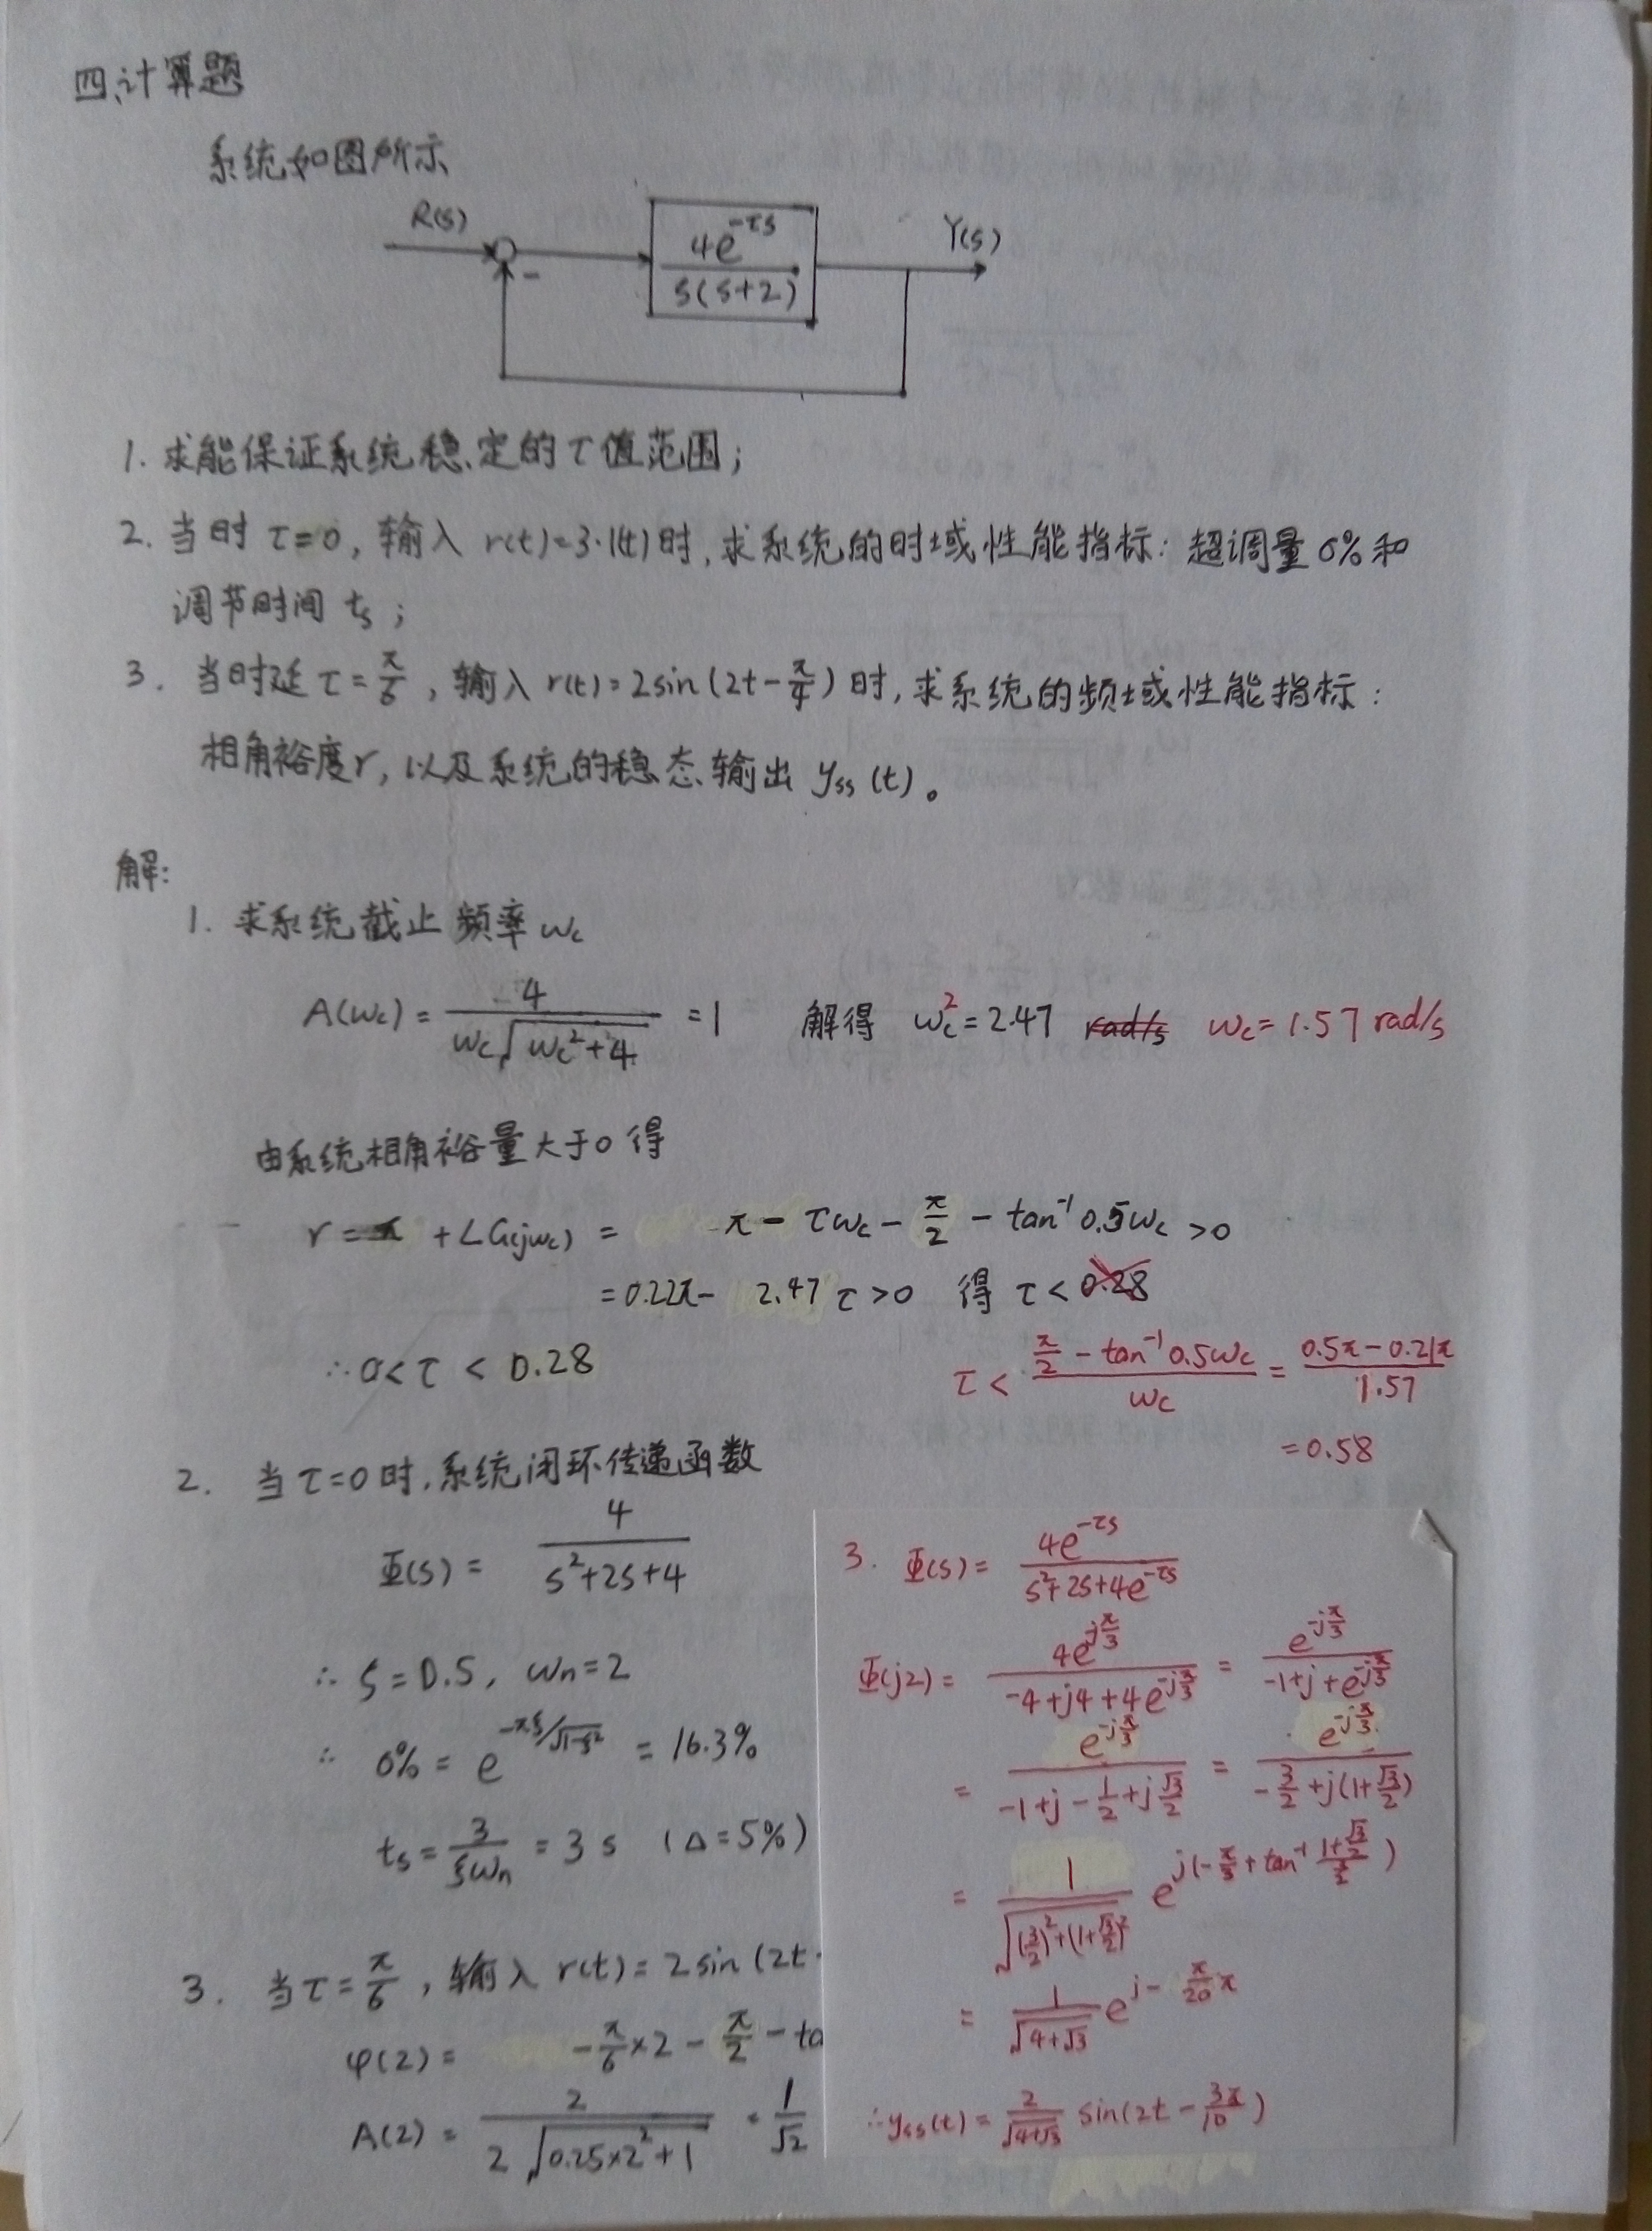 四、计算题
系统如图所示
R(s)
4e^{-τs}
s(s+2)
Y(s)
-
1. 求能保证系统稳定的τ值范围；
2. 当时 τ=0, 输入 r(t)=3·1(t)时,求系统的时域性能指标：超调量σ%和
调节时间 ts；
3. 当时延 τ=π/6 , 输入 r(t)=2sin(2t-π/4)时,求系统的频域性能指标：
相角裕度r, 以及系统的稳态输出 yss(t)。
解:
1. 求系统截止频率 ωc
A(ωc) = 4/(ωc√(ωc²+4)) = 1 解得 ωc²=2.47 rad/s ωc=1.57 rad/s
由系统相角裕量大于0得
r = π + ∠G(jωc) = π - τωc - π/2 - tan⁻¹0.5ωc >0
=0.22π- 2.47τ>0 得 τ<0.28
τ < (π/2 - tan⁻¹0.5ωc)/ωc = (0.5π-0.21π)/1.57
=0.58
∴0<τ < 0.28
2. 当τ=0时,系统闭环传递函数
Φ(s) = 4/(s²+2s+4)
∴ ξ=0.5, ωn=2
∴ σ% = e^{-πξ/√(1-ξ²)} = 16.3%
ts = 3/(ξωn) = 3 s (Δ=5%)
3. 当τ=π/6 , 输入 r(t)=2sin(2t
φ(2)= -π/6×2 - π/2 - ta
A(2) = 2/(2√(0.25×2²+1)) = 1/√2
3. Φ(s)= 4e^{-τs}/(s²+2s+4e^{-τs})
Φ(j2)= 4e^{-jπ/3}/(-4+j4+4e^{-jπ/3}) = e^{-jπ/3}/(-1+j+e^{-jπ/3})
= e^{-jπ/3}/(-1+j-1/2+j√3/2) = e^{-jπ/3}/(-3/2+j(1+√3/2))
= 1/√((3/2)²+(1+√3/2)²) e^{j(-π/3+tan⁻¹((1+√3/2)/(3/2)))}
= 1/√(4+√3) e^{j- π/20 π}
∴yss(t)= 2/√(4+√3) sin(2t-3π/10)